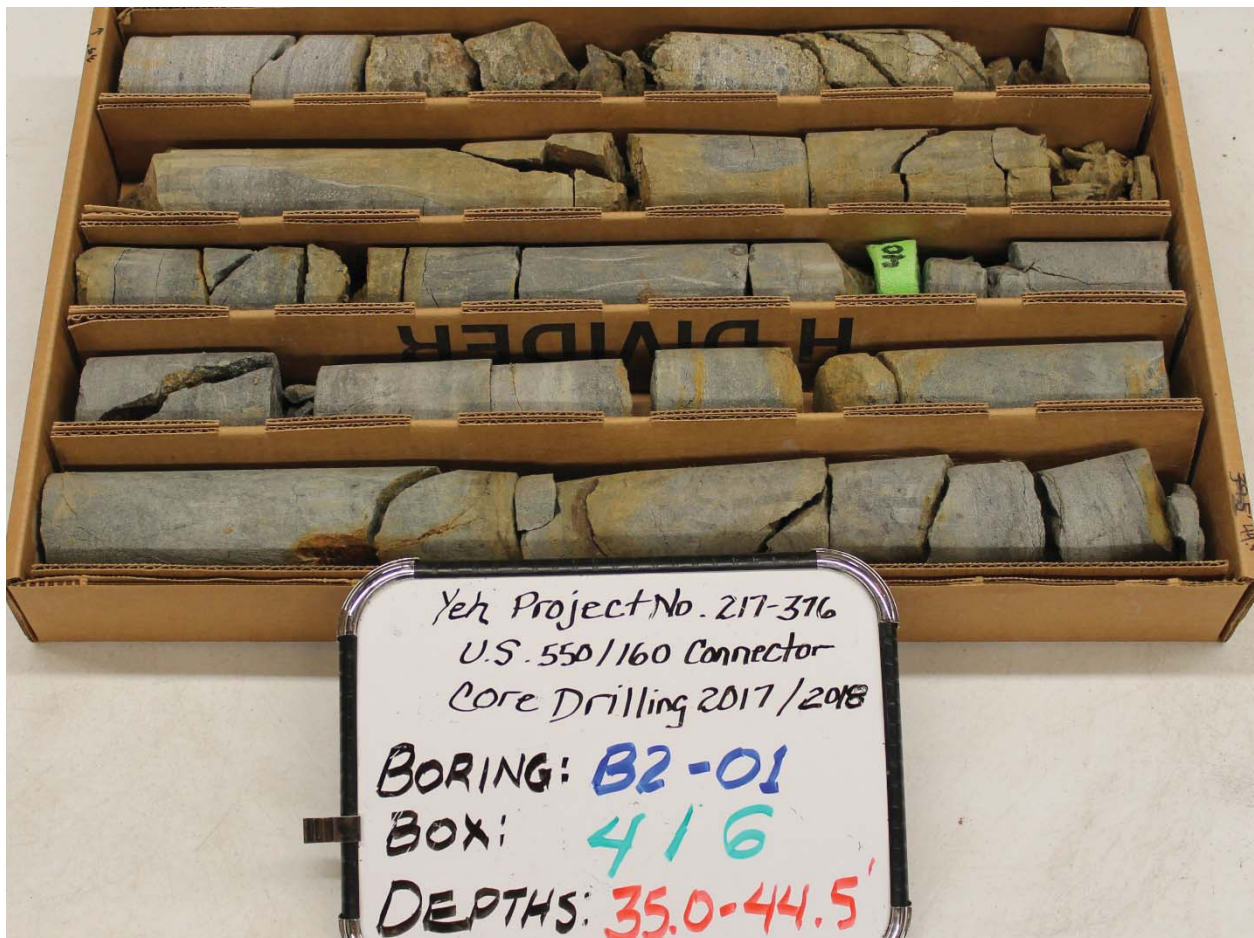 40
H DIVIDER
Yeh Project No. 217-376
U.S. 550/160 Connector
Core Drilling 2017/2018
BORING: B2-01
BOX: 4 / 6
DEPTHS: 35.0-44.5'